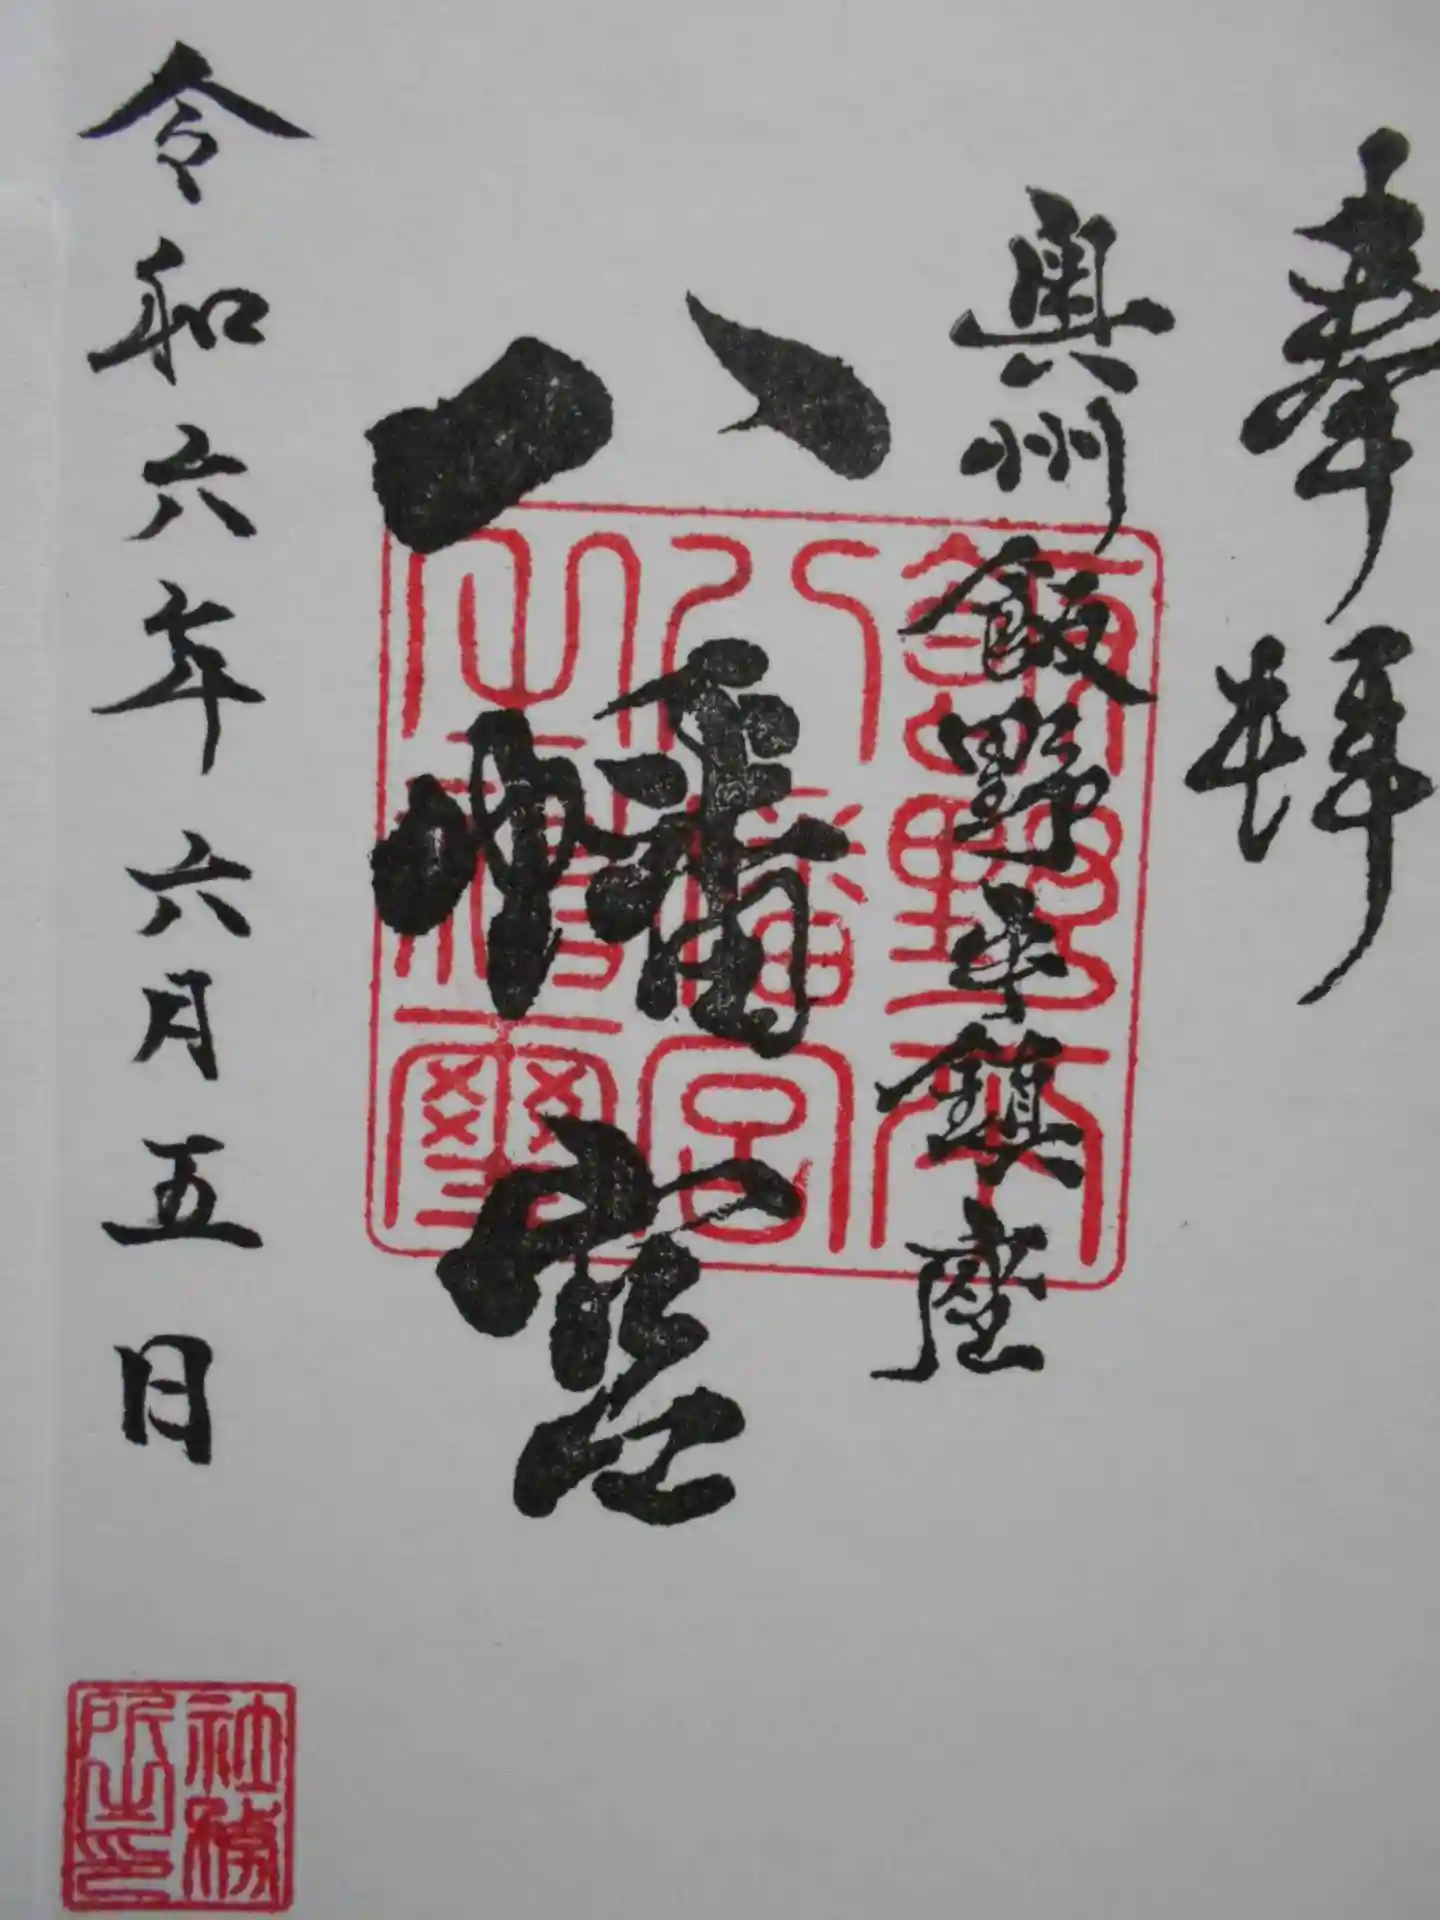 奉拝
奥州飯野平鎮座
八幡宮
飯野平
八幡宮
之神璽
令和六年六月五日
社務
所之印